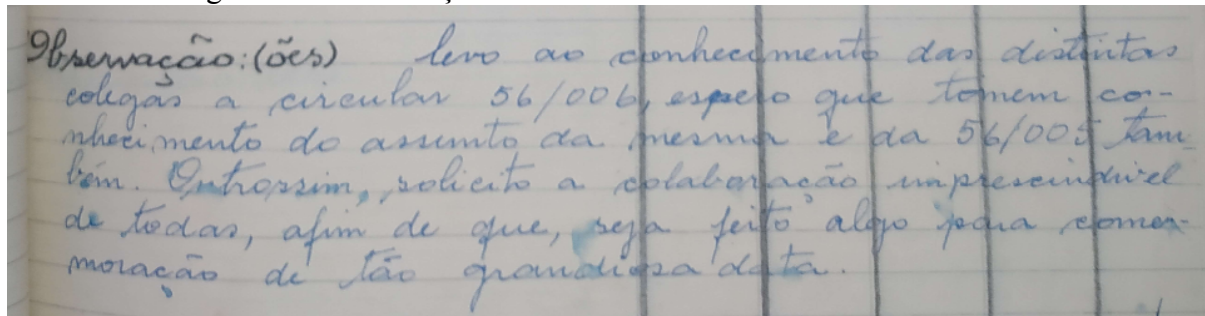 Observação:(ões) levo ao conhecimento das distintas
colegas a circular 56/006, espero que tomem co-
nhecimento do assunto da mesma e da 56/005 tam
bém. Outrossim, solicito a colaboração imprescindivel
de todas, afim de que, seja feito algo para come-
moração de tão grandiosa data.